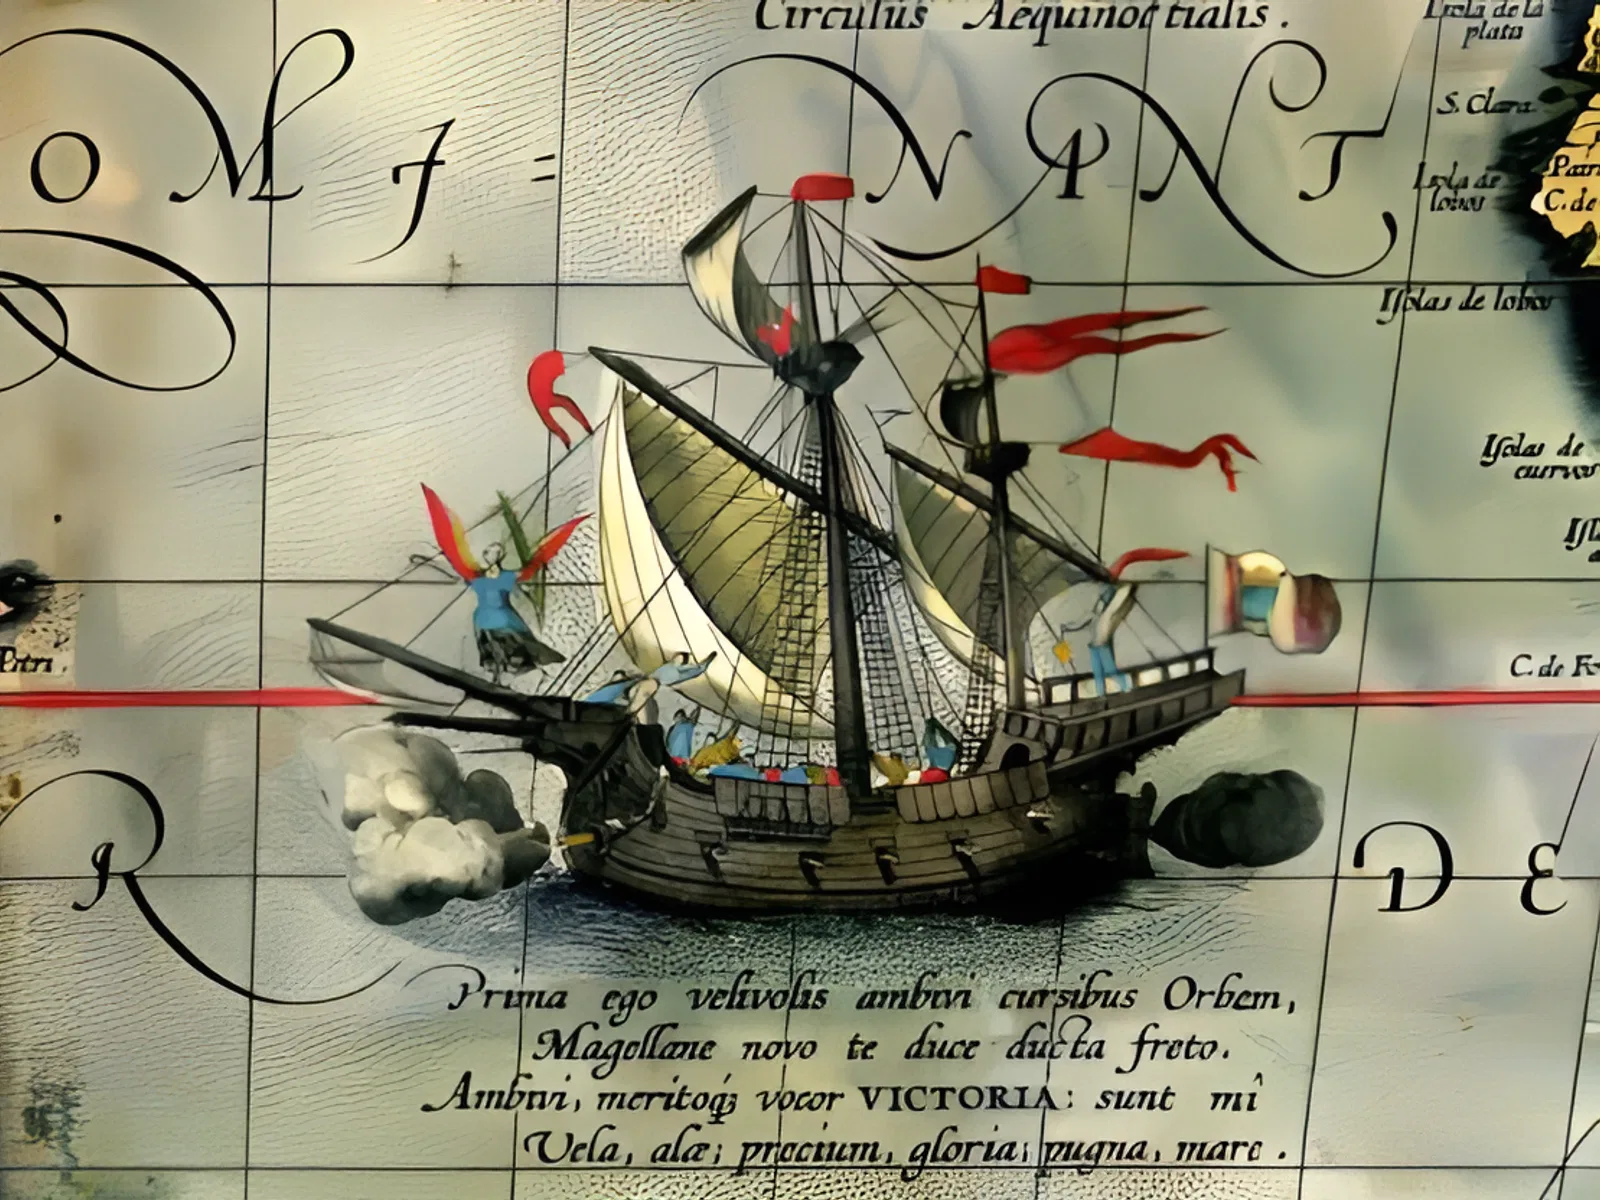 Circulus Aequinoctialis.
Isola de la
plata
O M I = N A N T
S. Clara
Isola de
lobos
C. de
Isolas de lobos
Isolas de
cuervos
C. de
R
D E
Prima ego velivolis ambivi cursibus Orbem,
Magellane novo te duce ducta freto.
Ambivi, meritoq́ꝫ vocor VICTORIA: sunt mî
Vela, alæ; precium, gloria; pugna, mare.